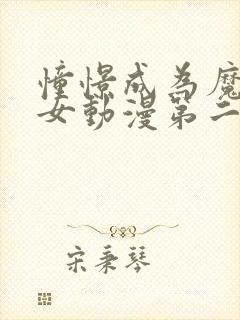 憧憬成為魔
女動漫第二
宋秉琴